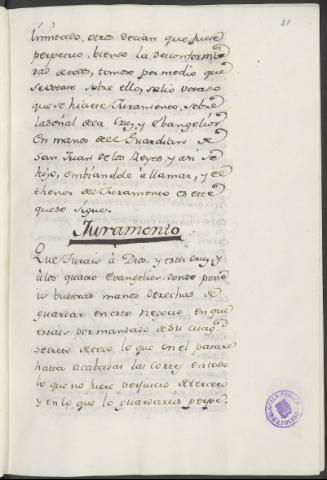 21
limitado, otros decian que fuese
perpetuo, biendo la desconformi-
dad de todos, tomose por medio que
se votase sobre ello, y salio votado
que se hiciese Juramento, sobre
la señal de la Cruz, y Evangelios
en manos de el Guardian de
San Juan de los Reyes, y an se
hijo, embiandole a llamar, y el
thenor de el Juramento es este
que se sigue.
Juramento
Que Jurais à Dios, y esta Cruz, y
à los quatro Evangelios donde pone
is buestras manos derechas de
guardar en este negocio, en que
estais por mandado de su
secreto de todo lo que en el pasare
hasta acabadas las Cortes, en todo
lo que no fuere perjuicio de tercero
y en lo que lo guardareis